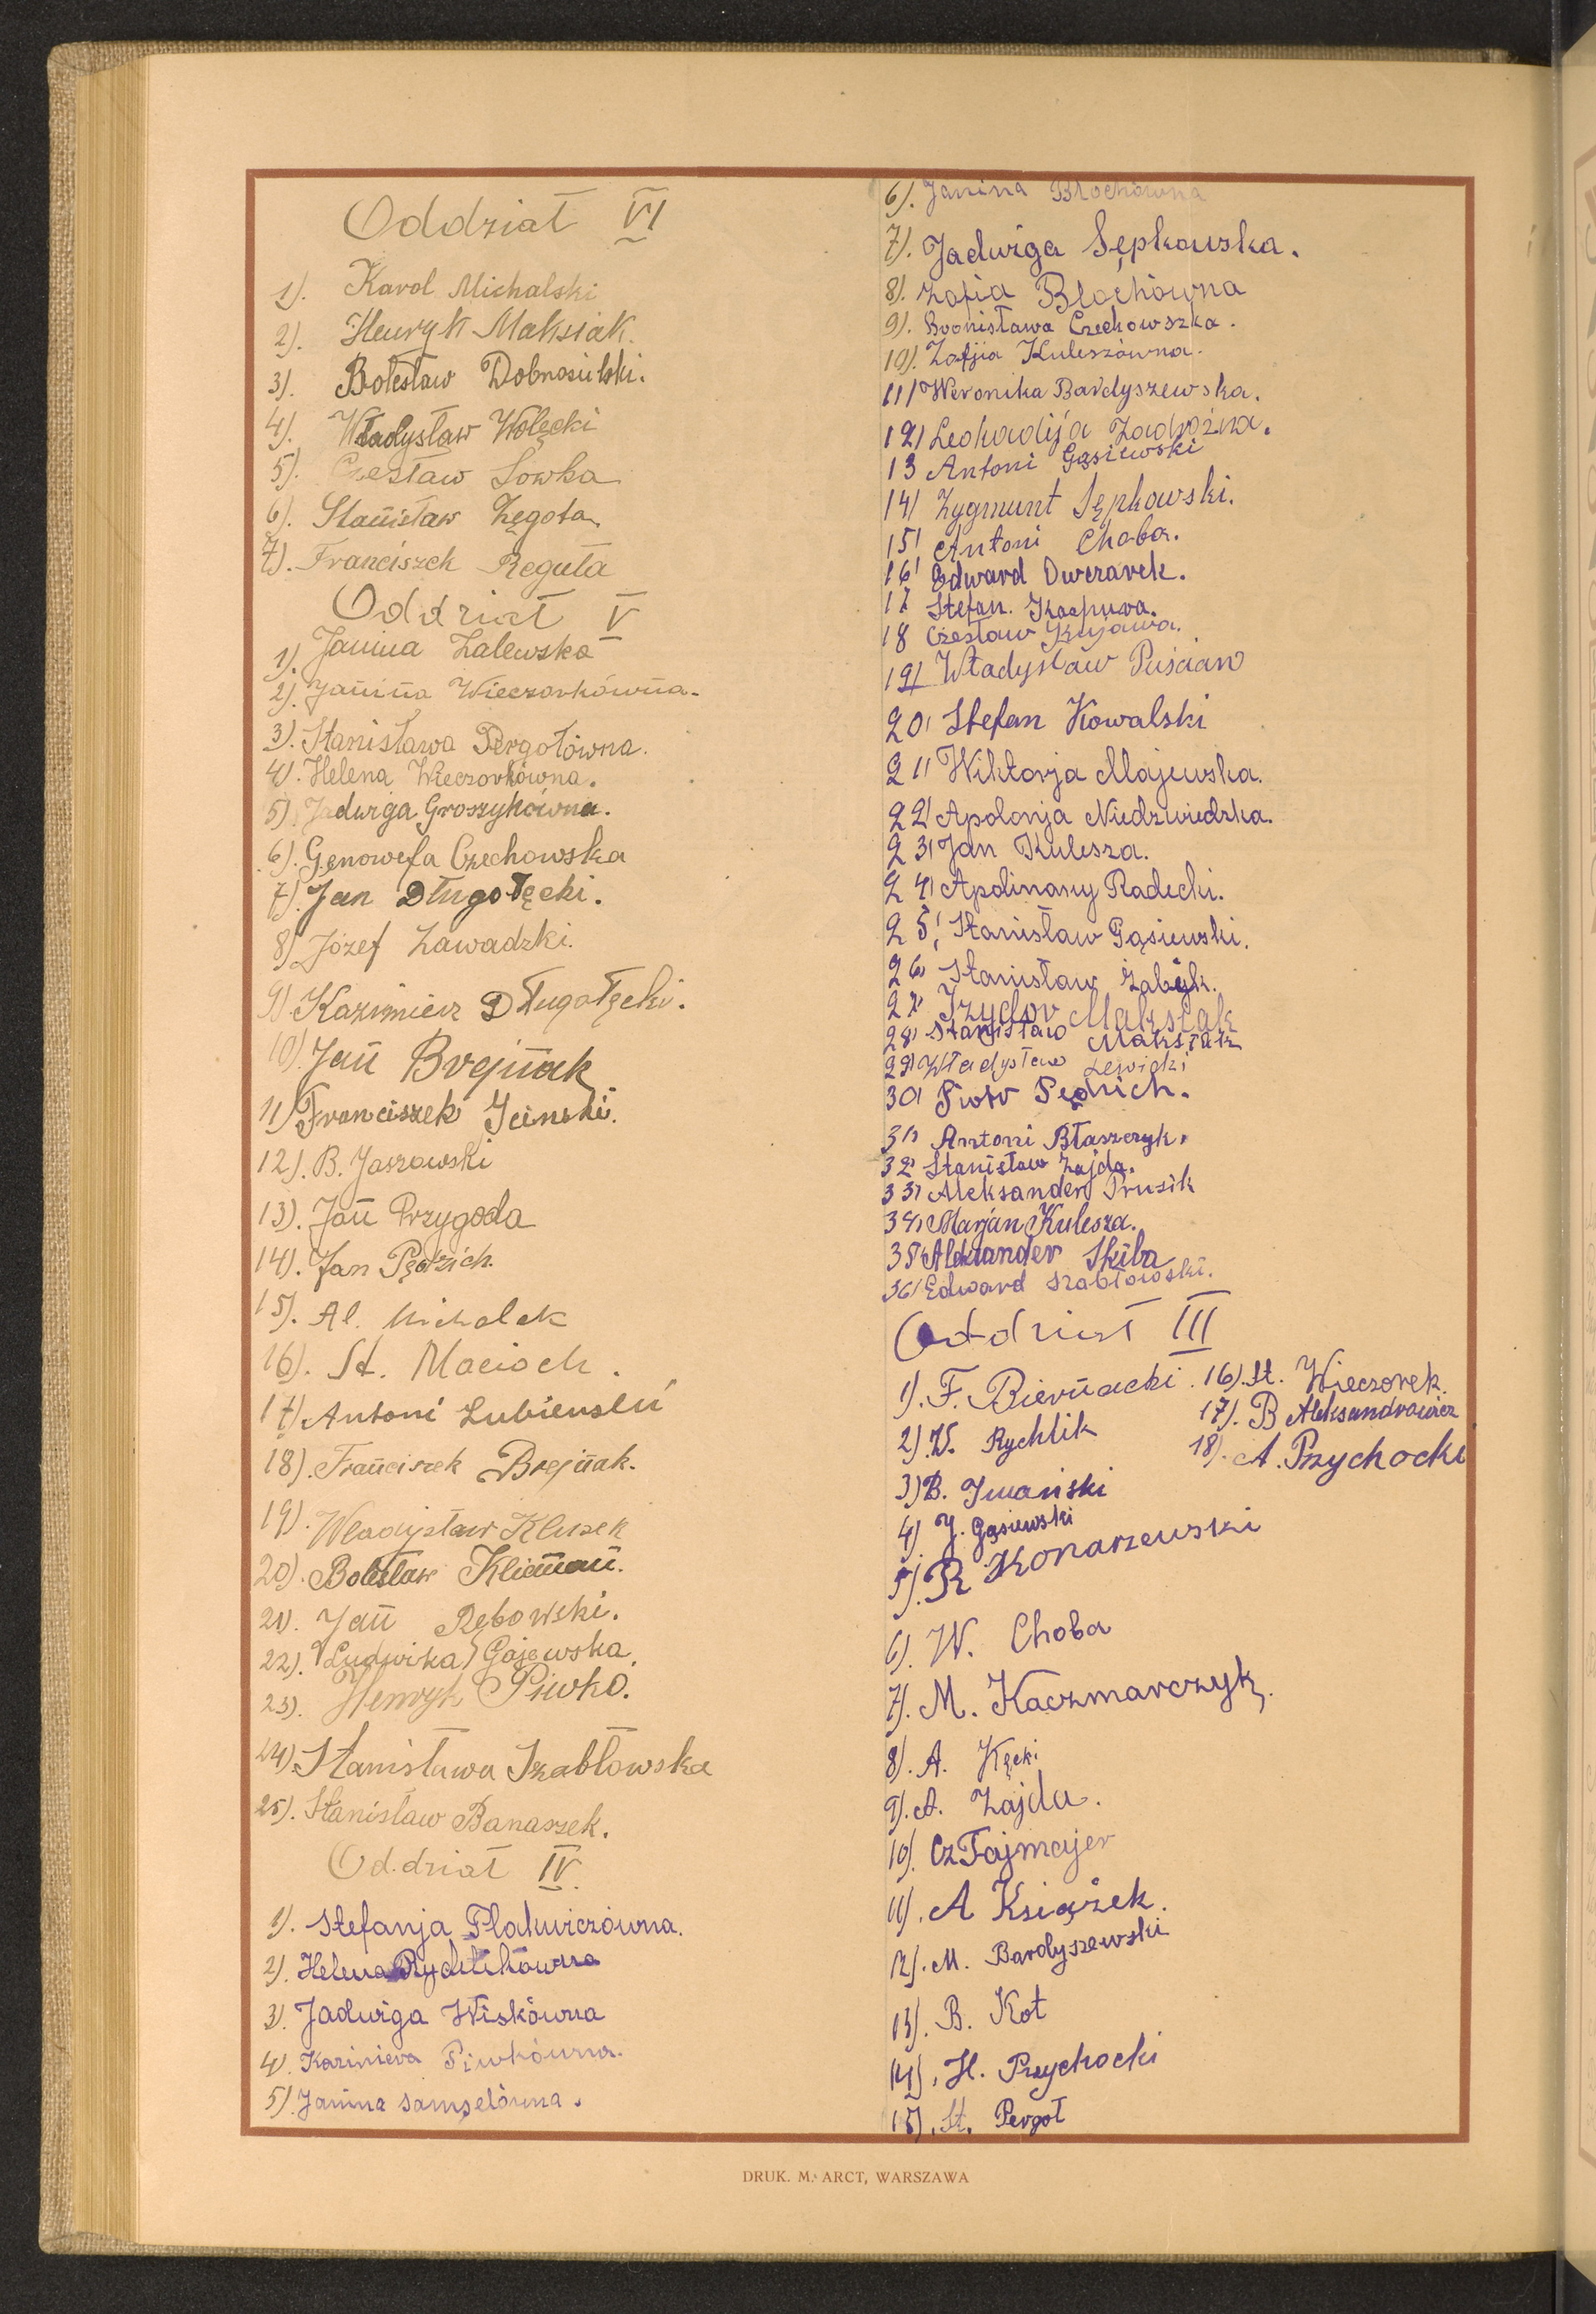 Oddział VI
1). Karol Michalski
2). Henryk Maksiak.
3). Bolesław Dobrosielski.
4). Władysław Wolęcki
5). Czesław Sowka
6). Stanisław Żęgota
7). Franciszek Reguła
Oddział V
1). Janina Zalewska
2). Janina Wieczorkówna.
3). Stanisława Pergołówna.
4). Helena Wieczorkówna.
5) Jadwiga Groszykówna.
6). Genowefa Czechowska
7). Jan Długołęcki.
8) Józef Zawadzki.
9). Kazimierz Długołęcki.
10). Jan Brejnak
11) Franciszek Iciński.
12). B. Jaszowski
13). Jan Przygoda
14). Jan Pędzich.
15). Al. Michalak
16). St. Macioch.
17) Antoni Lubieński
18). Franciszek Brejnak.
19). Władysław Klusek
20). Bolesław Kliman.
21). Jan Rębowski.
22). Ludwika Gajewska.
23). Henryk Piwko.
24). Stanisława Szabłowska
25). Stanisław Banaszek.
Oddział IV
1). Stefanja Flakwiczówna.
2). Helena Rychlikówna
3). Jadwiga Wiskówna
4). Kazimiera Piwkówna.
5). Janina Samselówna.
6). Janina Błochówna
7). Jadwiga Sępkowska.
8). Zofia Błochówna
9). Bronisława Czechowszka.
10). Zofjia Kuleszówna.
11/ Weronika Bardyszewska.
12/ Leokadija Zadrożna.
13 Antoni Gąsiewski
14/ Zygmunt Sępkowski.
15/ Antoni Choba.
16/ Edward Owczarek.
17 Stefan. Kacpura.
18 Czesław Kujawa.
19/ Władysław
20/ Stefan Kowalski
21/ Wiktorja Majewska.
22/ Apolonja Niedzwiedzka.
23/ Jan Kulesza.
24/ Apolinary Radecki.
25/ Stanisław Gąsiewski.
26/ Stanisław Żabik.
27/ Izydor Maksiak
28/ Stanisław Maksiak
29/ Władysław Lewicki
30/ Piotr Pędzich.
31/ Antoni Błaszczyk.
32/ Stanisław Zajda.
33/ Aleksander Prusik
34/ Marjan Kulesza.
35/ Aleksander Skiba
36/ Edward Szabłowski.
Oddział III
1). F. Biernacki.
2). W. Rychlik
3) B. Iwański
4) J. Gąsiewski
5). R Konarzewski
6). W. Choba
7). M. Kaczmarczyk.
8). A. Kęcki
9). A. Zajda.
10). Cz Fajmajer
11). A Książek.
12). M. Bardyszewski
13). B. Kot
14). H. Przychocki
15). St. Pergoł
16). St. Wieczorek.
17). B Aleksandrowicz
18). A. Przychocki
DRUK. M. ARCT, WARSZAWA